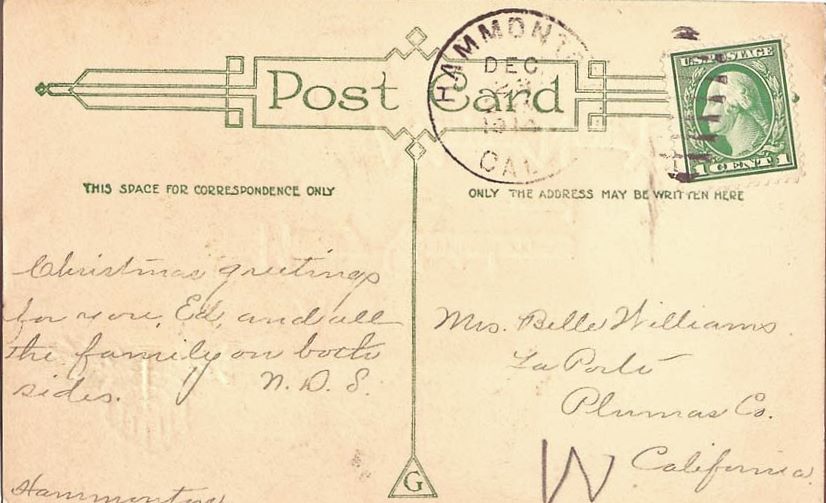 Post Card
HAMMONT
DEC
1914
CAL
U.S. POSTAGE
1 CENT 1
THIS SPACE FOR CORRESPONDENCE ONLY
ONLY THE ADDRESS MAY BE WRITTEN HERE
Christmas greetings
for you, Ed, and all
the family on both
sides. N. D. S.
Hammonton
Mrs. Belle Williams
La Porte
Plumas Co.
California
W
G